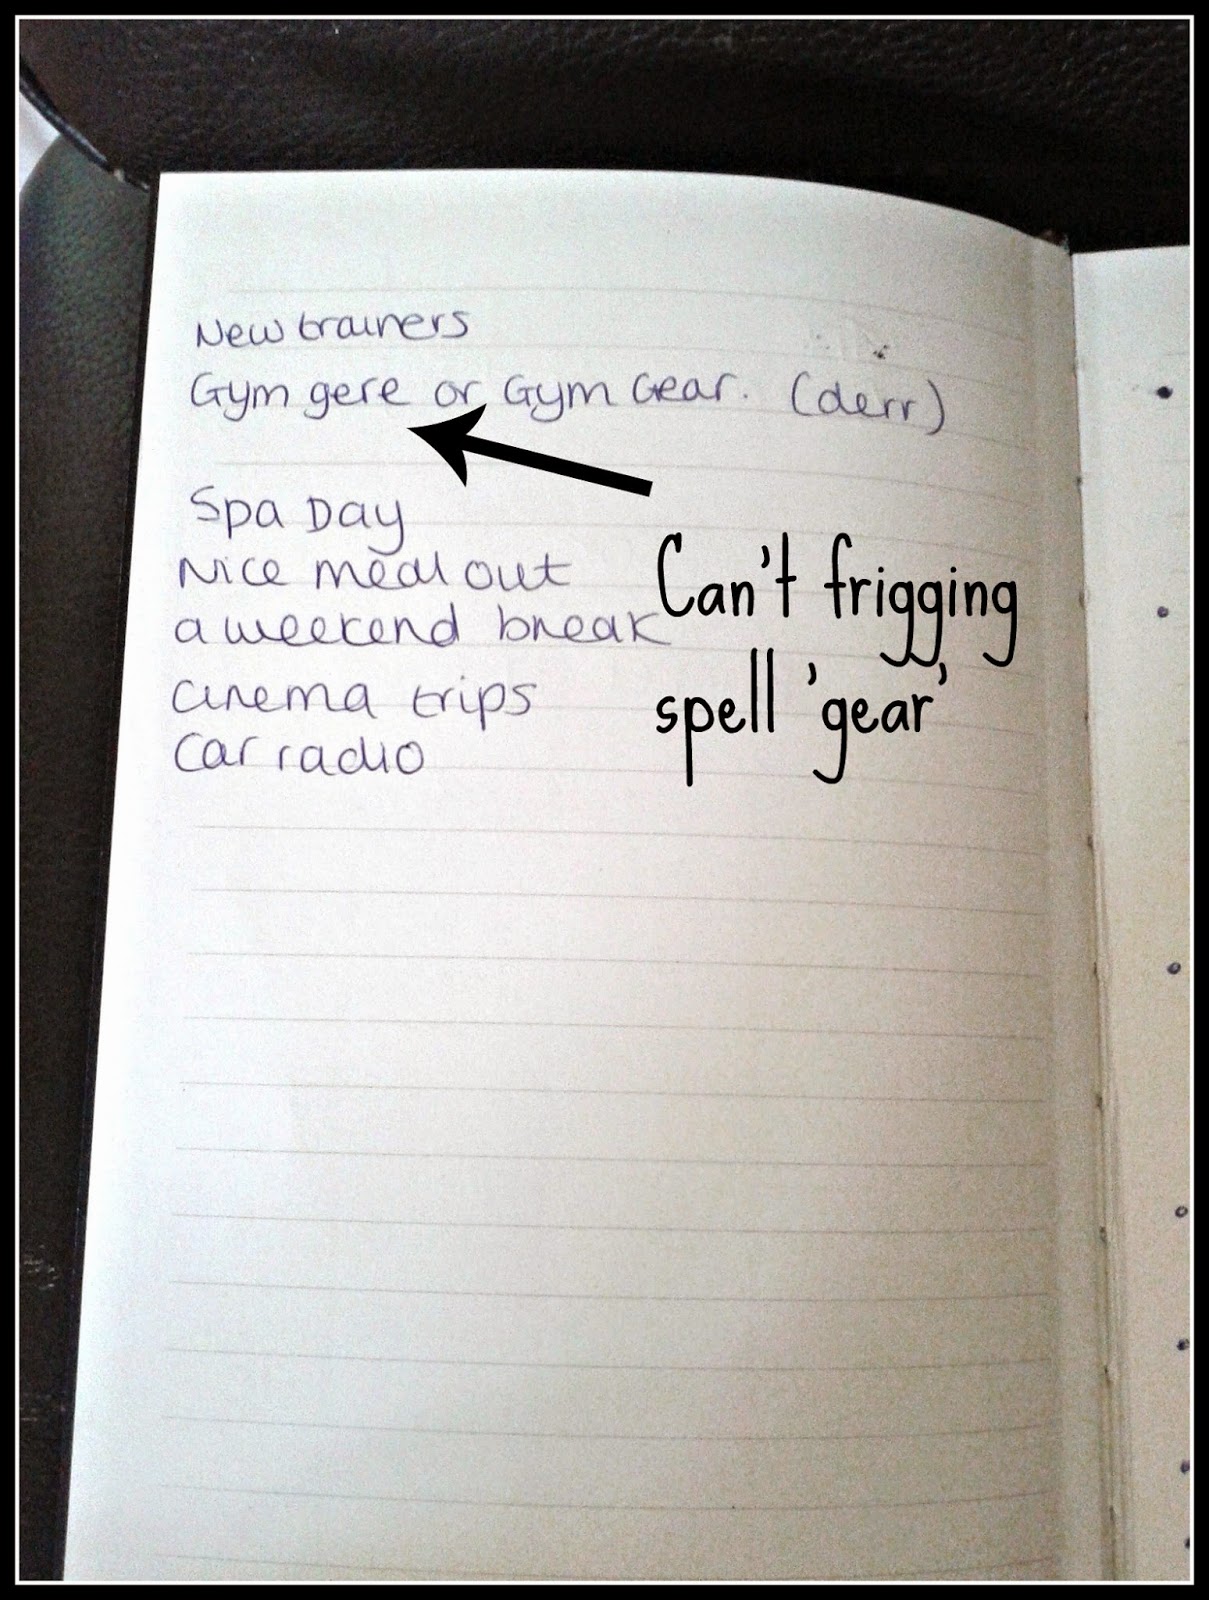 New trainers
Gym gere or Gym Gear. (derr)
Spa Day
Nice meal out
a weekend break
cinema trips
Car radio
Can't frigging
spell 'gear'